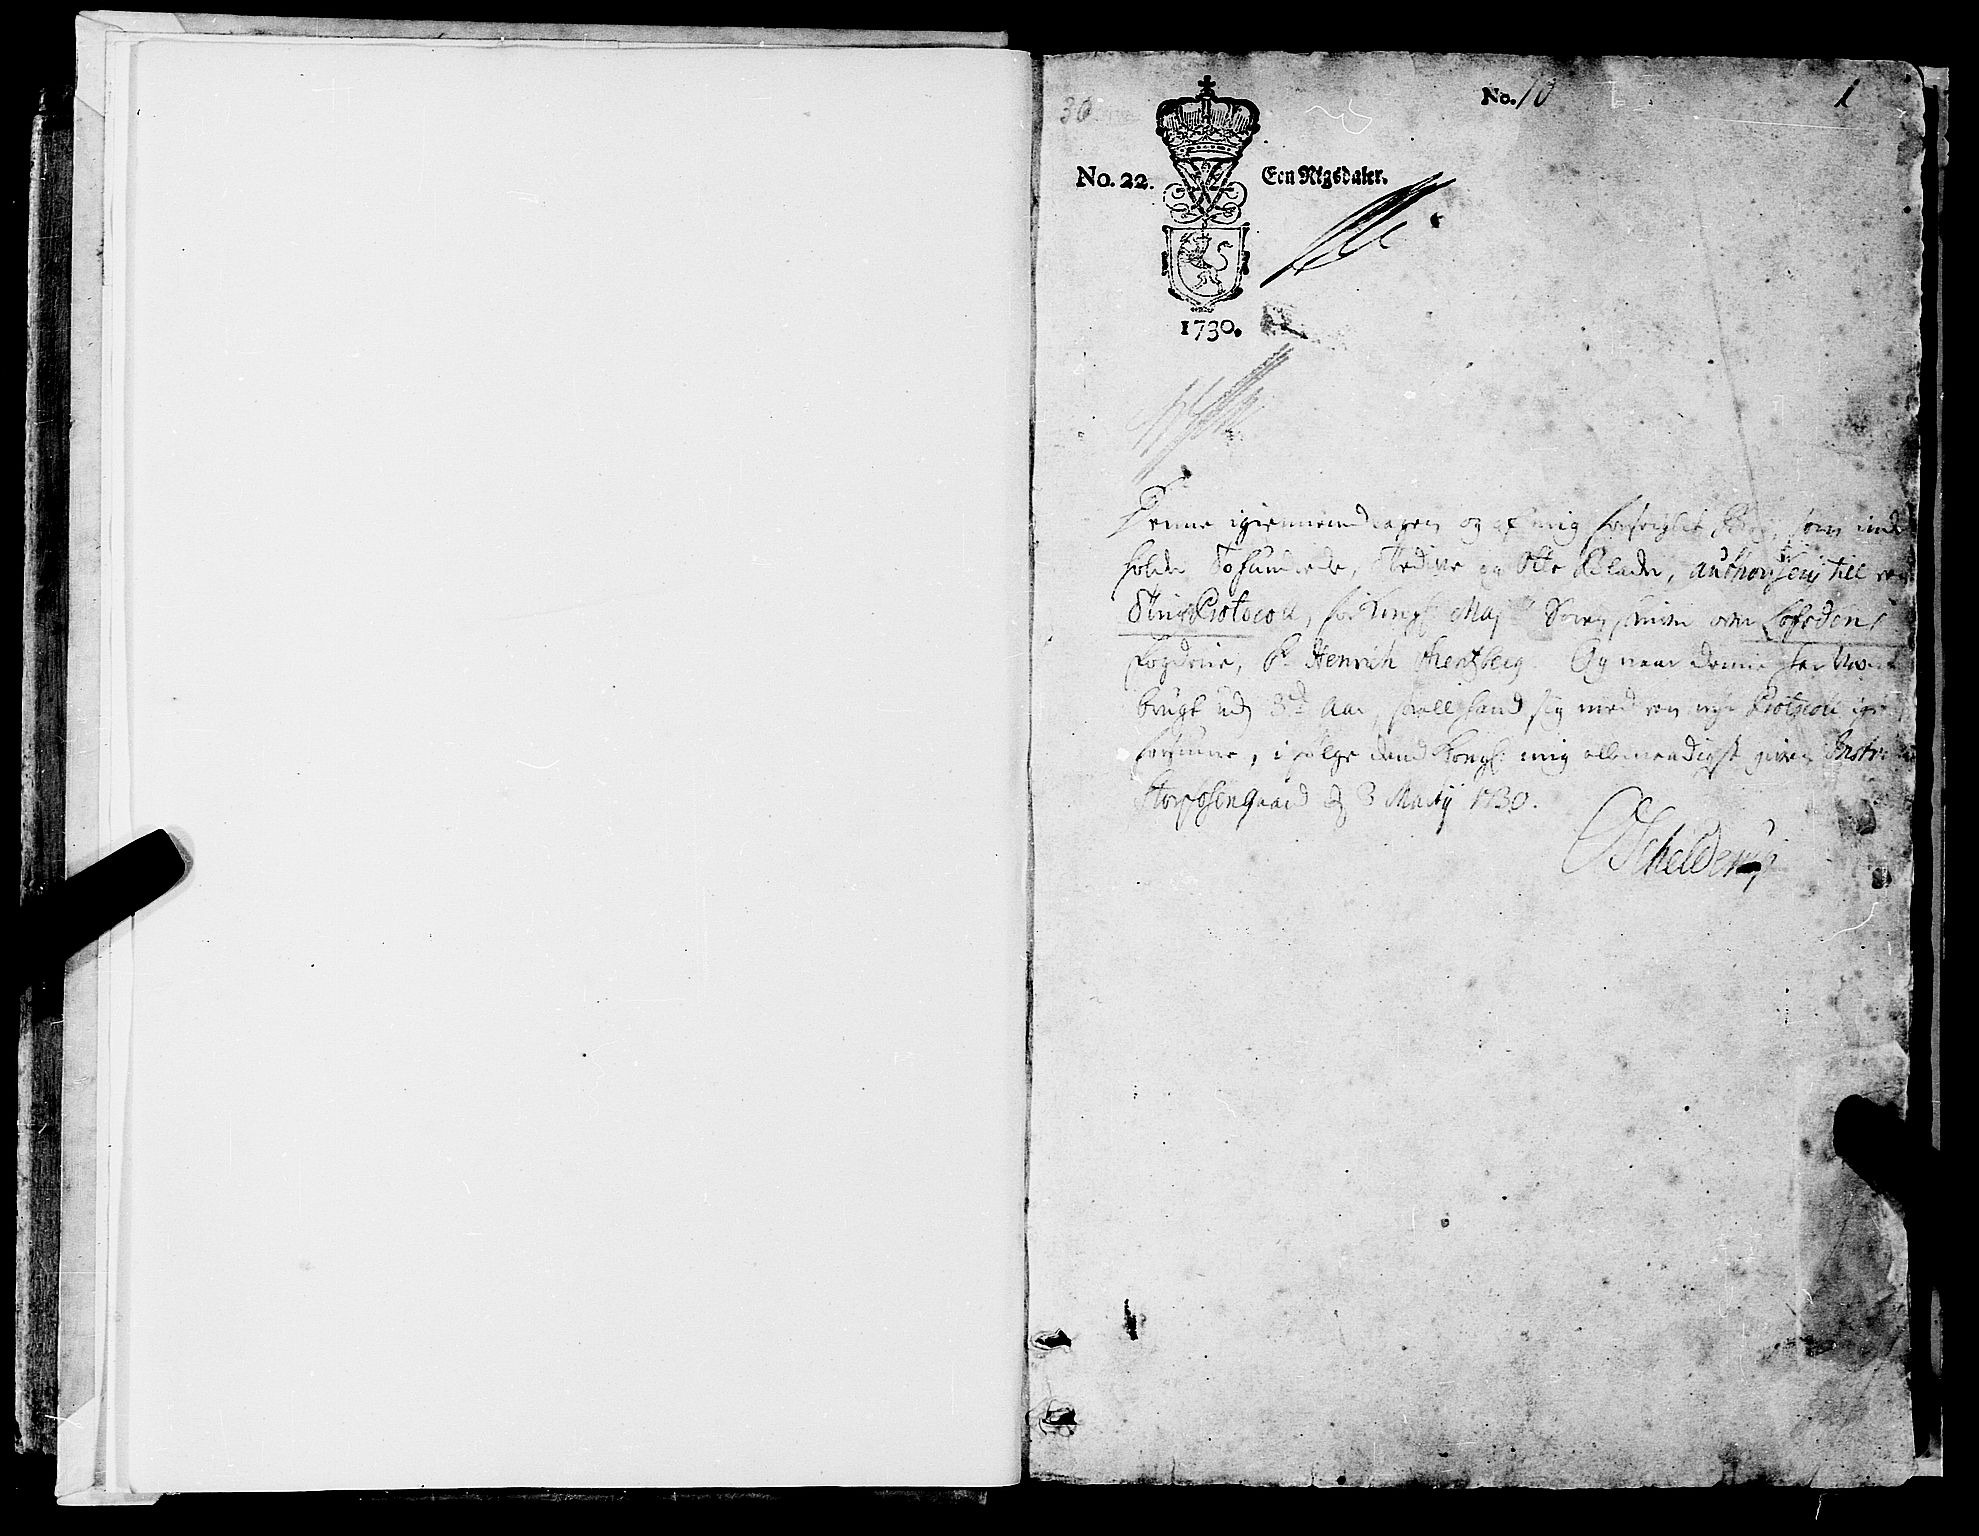 30
No. 10
1
No. 22.
Een Rigsdaler.
1730.
Denne igiennemdragen og af mig forseiglet Bog, som inde
holder Tohundrede, Tredive og Otte Blader, authoriseris till een
Ting Protocoll, for Kongl: Maj: Sorenskriver over Fosens
Fogderie, Sr Henrich Hertzberg. Og naar denne har været
brugt udj 3de Aar, skall hand sig med een nye Protocoll igien
forsiune, i følge dend Kongl: mig allernaadigst given Instr
Storfosengaard d 3 Martij 1730.
Schelderup